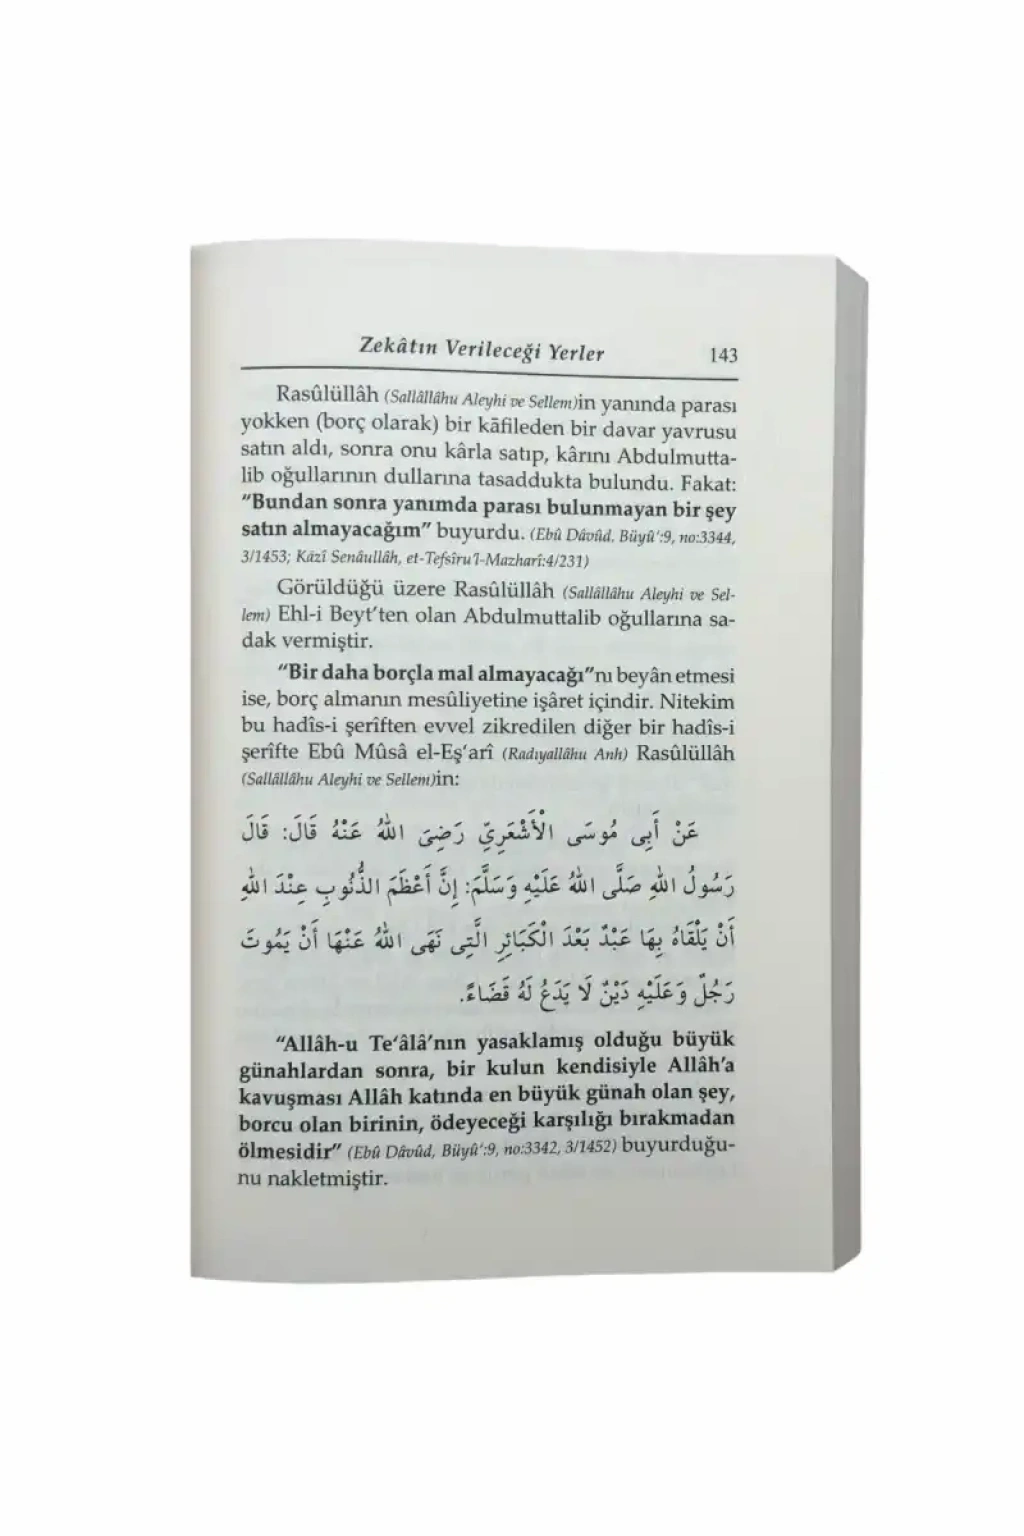 Zekâtın Verileceği Yerler 143
Rasûlüllâh (Sallâllâhu Aleyhi ve Sellem)in yanında parası
yokken (borç olarak) bir kāfileden bir davar yavrusu
satın aldı, sonra onu kârla satıp, kârını Abdulmutta-
lib oğullarının dullarına tasaddukta bulundu. Fakat:
"Bundan sonra yanımda parası bulunmayan bir şey
satın almayacağım" buyurdu. (Ebû Dâvûd, Büyû':9, no:3344,
3/1453; Kāzî Senâullâh, et-Tefsîru'l-Mazharî:4/231)
Görüldüğü üzere Rasûlüllâh (Sallâllâhu Aleyhi ve Sel-
lem) Ehl-i Beyt'ten olan Abdulmuttalib oğullarına sa-
dak vermiştir.
"Bir daha borçla mal almayacağı"nı beyân etmesi
ise, borç almanın mesûliyetine işâret içindir. Nitekim
bu hadîs-i şerîften evvel zikredilen diğer bir hadîs-i
şerîfte Ebû Mûsâ el-Eş'arî (Radıyallâhu Anh) Rasûlüllâh
(Sallâllâhu Aleyhi ve Sellem)in:
عَنْ أَبِى مُوسَى الْأَشْعَرِيِّ رَضِىَ اللهُ عَنْهُ قَالَ: قَالَ
رَسُولُ اللهِ صَلَّى اللهُ عَلَيْهِ وَسَلَّمَ: إِنَّ أَعْظَمَ الذُّنُوبِ عِنْدَ اللهِ
أَنْ يَلْقَاهُ بِهَا عَبْدٌ بَعْدَ الْكَبَائِرِ الَّتِى نَهَى اللهُ عَنْهَا أَنْ يَمُوتَ
رَجُلٌ وَعَلَيْهِ دَيْنٌ لَا يَدَعُ لَهُ قَضَاءً.
"Allâh-u Te'âlâ'nın yasaklamış olduğu büyük
günahlardan sonra, bir kulun kendisiyle Allâh'a
kavuşması Allâh katında en büyük günah olan şey,
borcu olan birinin, ödeyeceği karşılığı bırakmadan
ölmesidir" (Ebû Dâvûd, Büyû':9, no:3342, 3/1452) buyurduğu-
nu nakletmiştir.